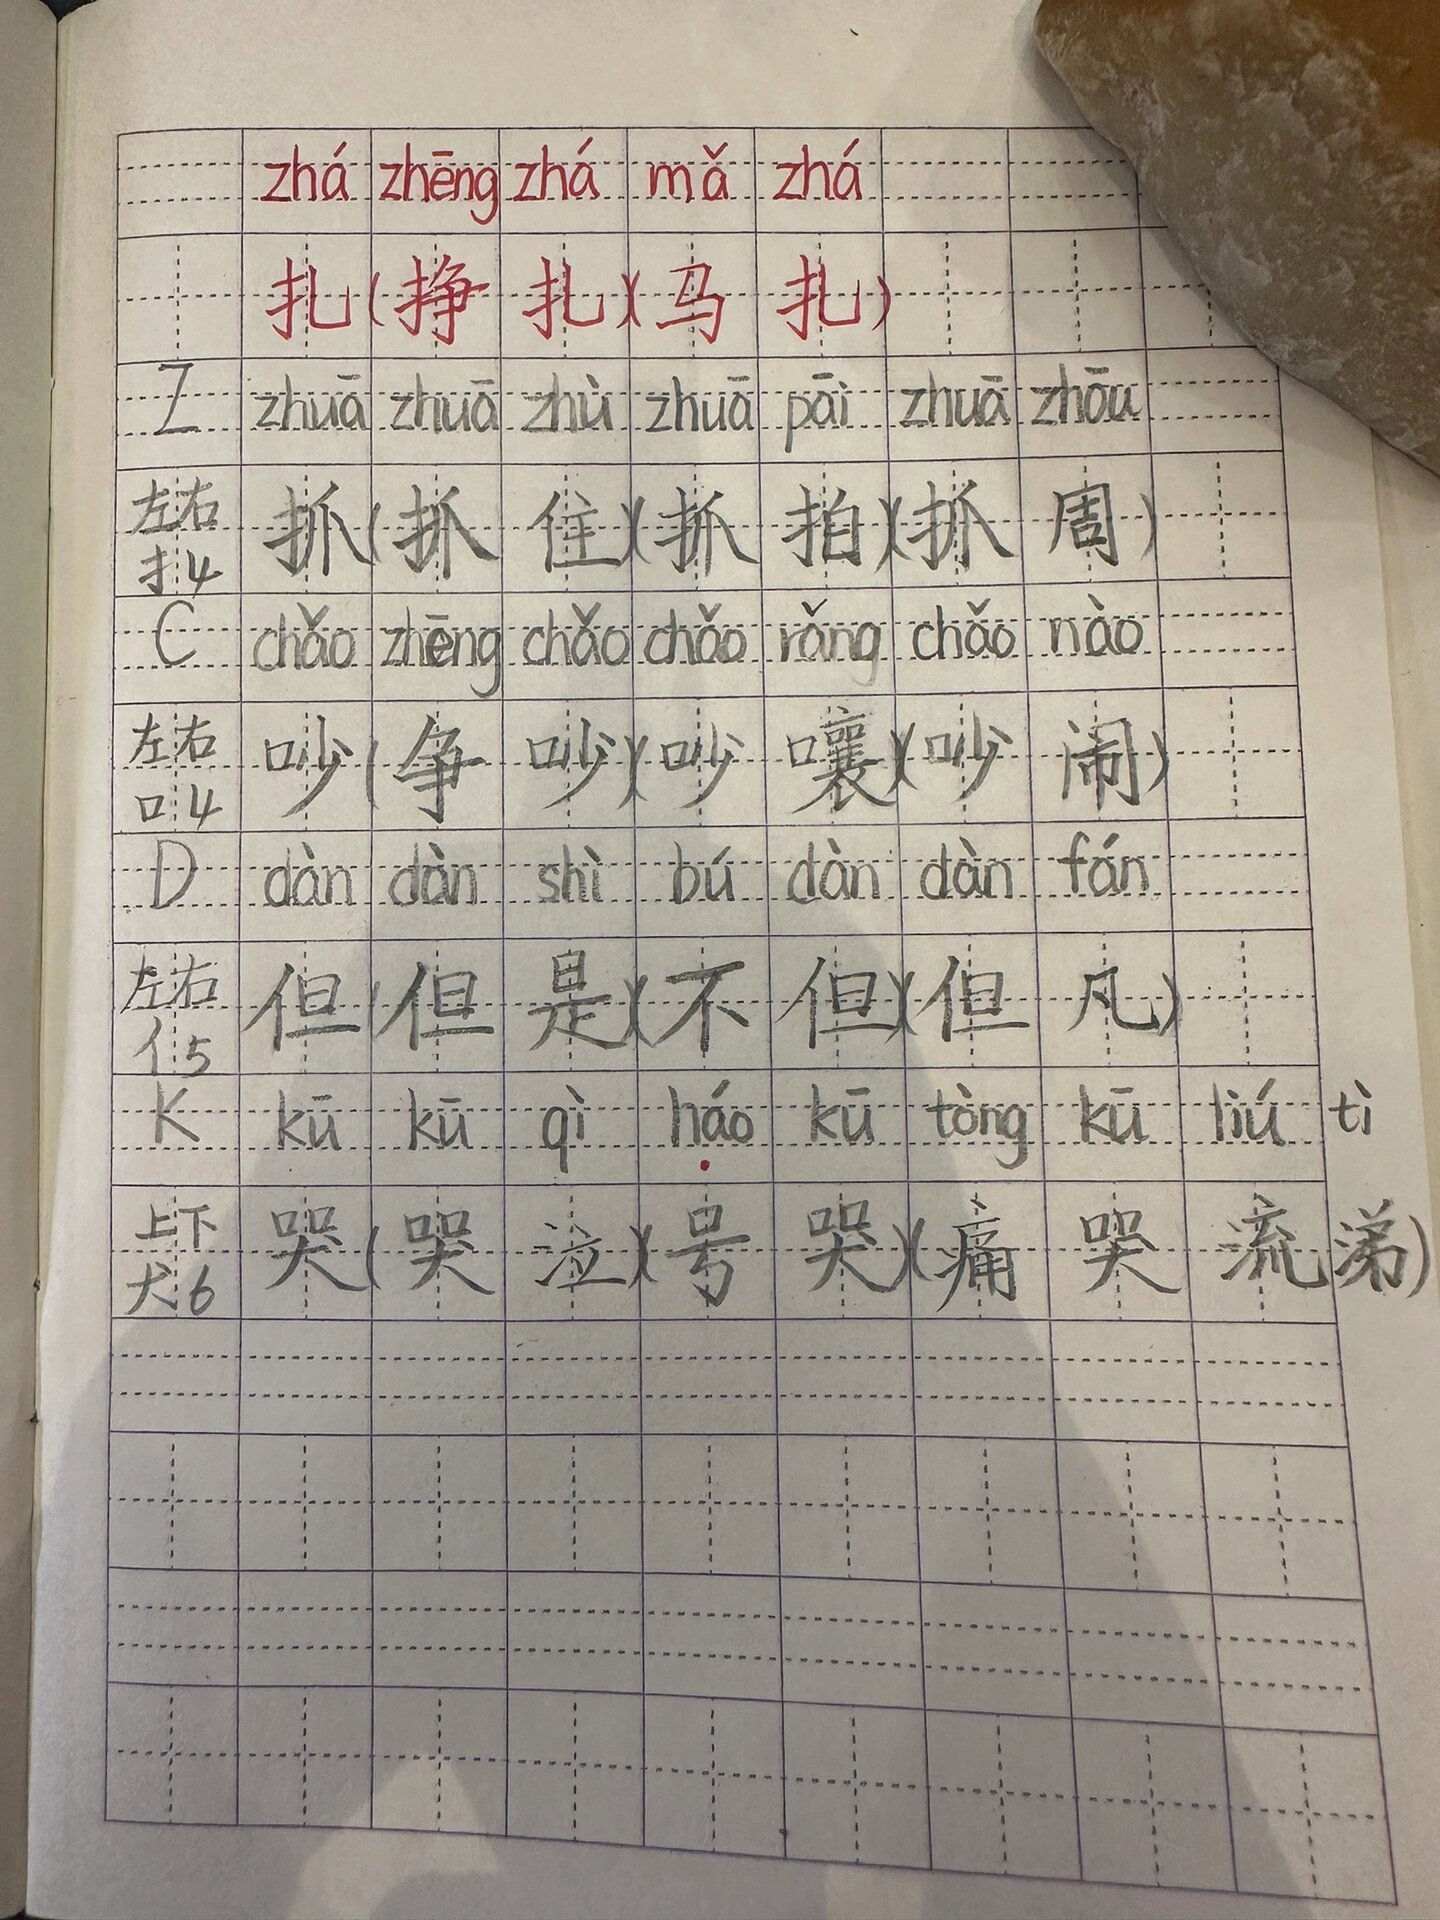 zhá zhēng zhá mǎ zhá
扎(挣扎)(马扎)
Z zhuā zhuā zhù zhuā pāi zhuā zhōu
左右 扌4 抓(抓住)(抓拍)(抓周)
C chǎo zhēng chǎo chǎo rǎng chǎo nào
左右 口4 吵(争吵)(吵嚷)(吵闹)
D dàn dàn shì bú dàn dàn fán
左右 亻5 但(但是)(不但)(但凡)
K kū kū qì háo kū tòng kū liú tì
上下 犬6 哭(哭泣)(号哭)(痛哭流涕)